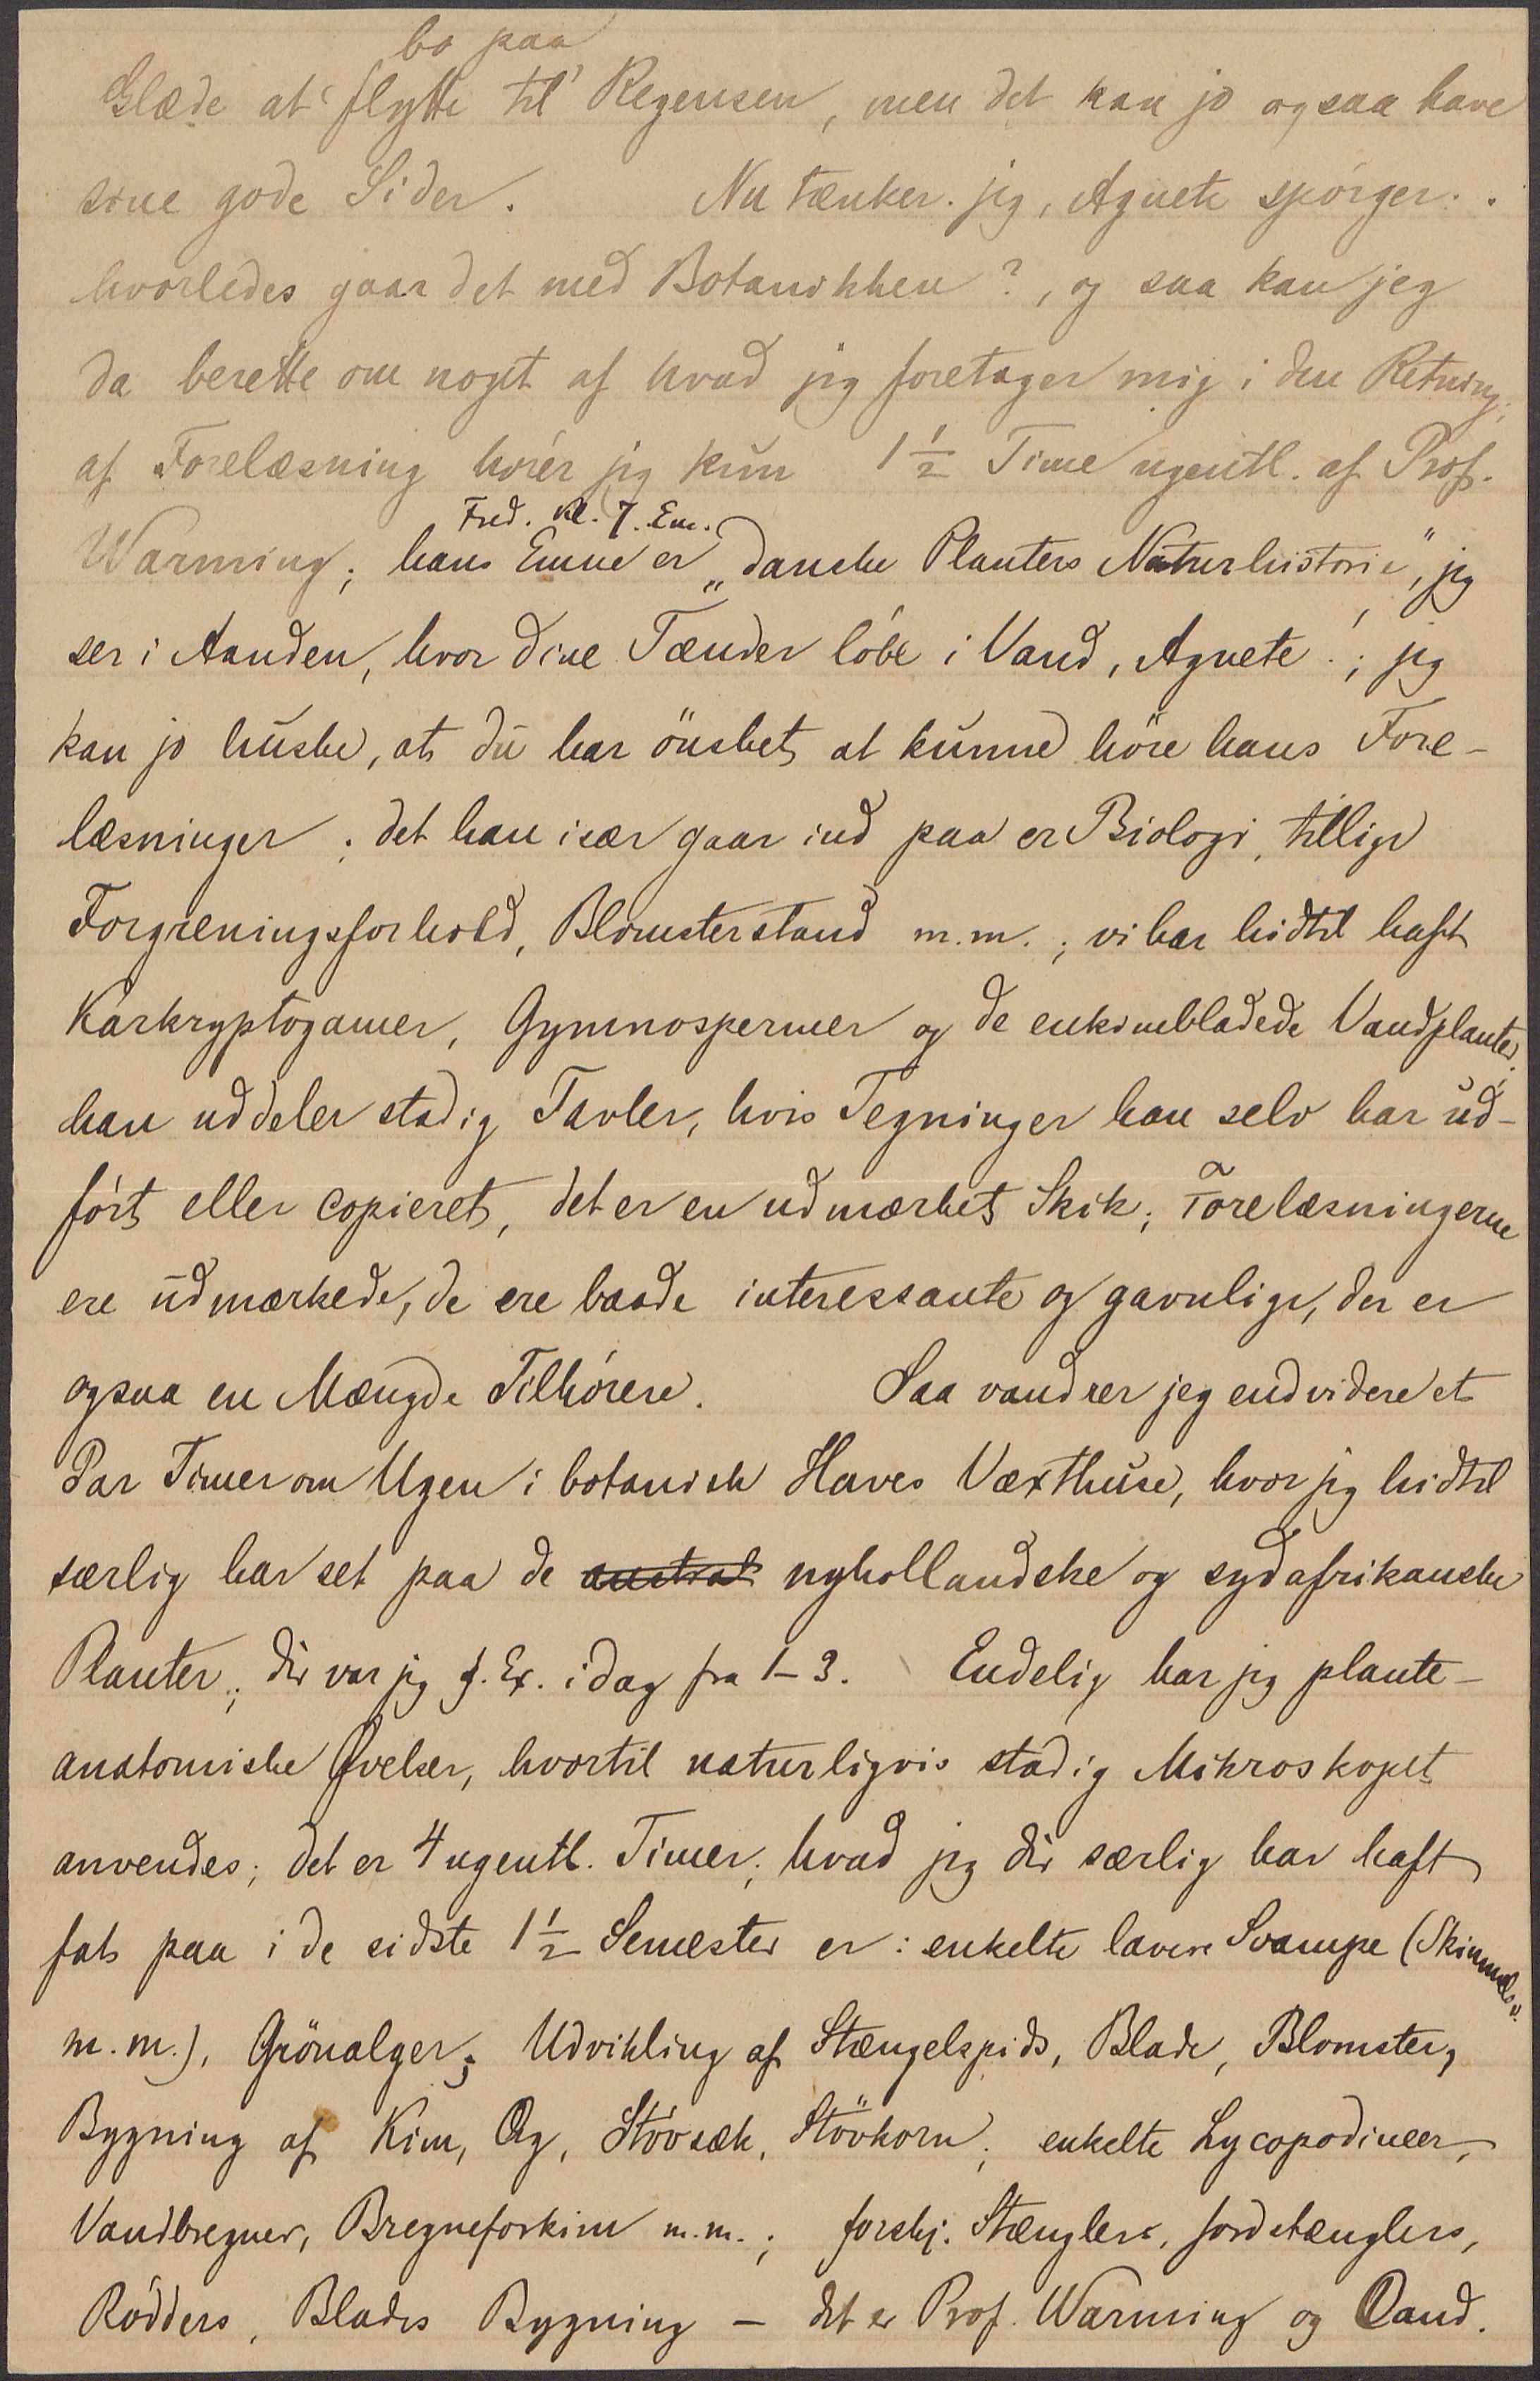 bo paa
Glæde at flytte til Regensen, men det kan jo ogsaa have
sine gode Sider. Nu tænker jeg, Agnete spörger:
hvorledes gaar det med Botanikken?, og saa kan jeg
da berette om noget af hvad jeg foretager mig i den Retning;
af Forelæsning hörer jeg kun 1 1/2 Time ugentl. af Prof.
Fred. Kl. 7. Em.
Warming; hans Emne er „danske Planters Naturhistorie", jeg
ser i Aanden, hvor dine Tænder löbe i Vand, Agnete!; jeg
kan jo huske, at du har önsket at kunne höre hans Fore-
læsninger; det han især gaar ind paa er Biologi, tillige
Forgreningsforhold, Blomsterstand m.m.; vi har hidtil haft
Karkryptogamer, Gymnospermer og de enkimbladede Vandplanter;
han uddeler stadig Tavler, hvis Tegninger han selv har ud-
fört eller copieret, det er en udmærket Skik; Forelæsningerne
ere udmærkede, de ere baade interessante og gavnlige, der er
ogsaa en Mængde Tilhörere. Saa vandrer jeg endvidere et
Par Timer om Ugen i botanisk Haves Væxthuse, hvor jeg hidtil
særlig har set paa de austral nyhollandske og sydafrikanske
Planter; dér var jeg f. Ex. idag fra 1-3. Endelig har jeg plante-
anatomiske Øvelser, hvortil naturligvis stadig Mikroskopet
anvendes; det er 4 ugentl. Timer; hvad jeg dér særlig har haft
fat paa i de sidste 1 1/2 Semester er: enkelte lavere Svampe (Skimmelsv.
m.m.), Grönalger; Udvikling af Stængelspids, Blade, Blomster,
Bygning af Kim, Æg, Stövsæk, Stövkorn; enkelte Lycopodineer,
Vandbregner, Bregneforkim m.m.; forskj. Stænglers, Jordstænglers,
Rödders, Blades Bygning – det er Prof. Warming og Cand.